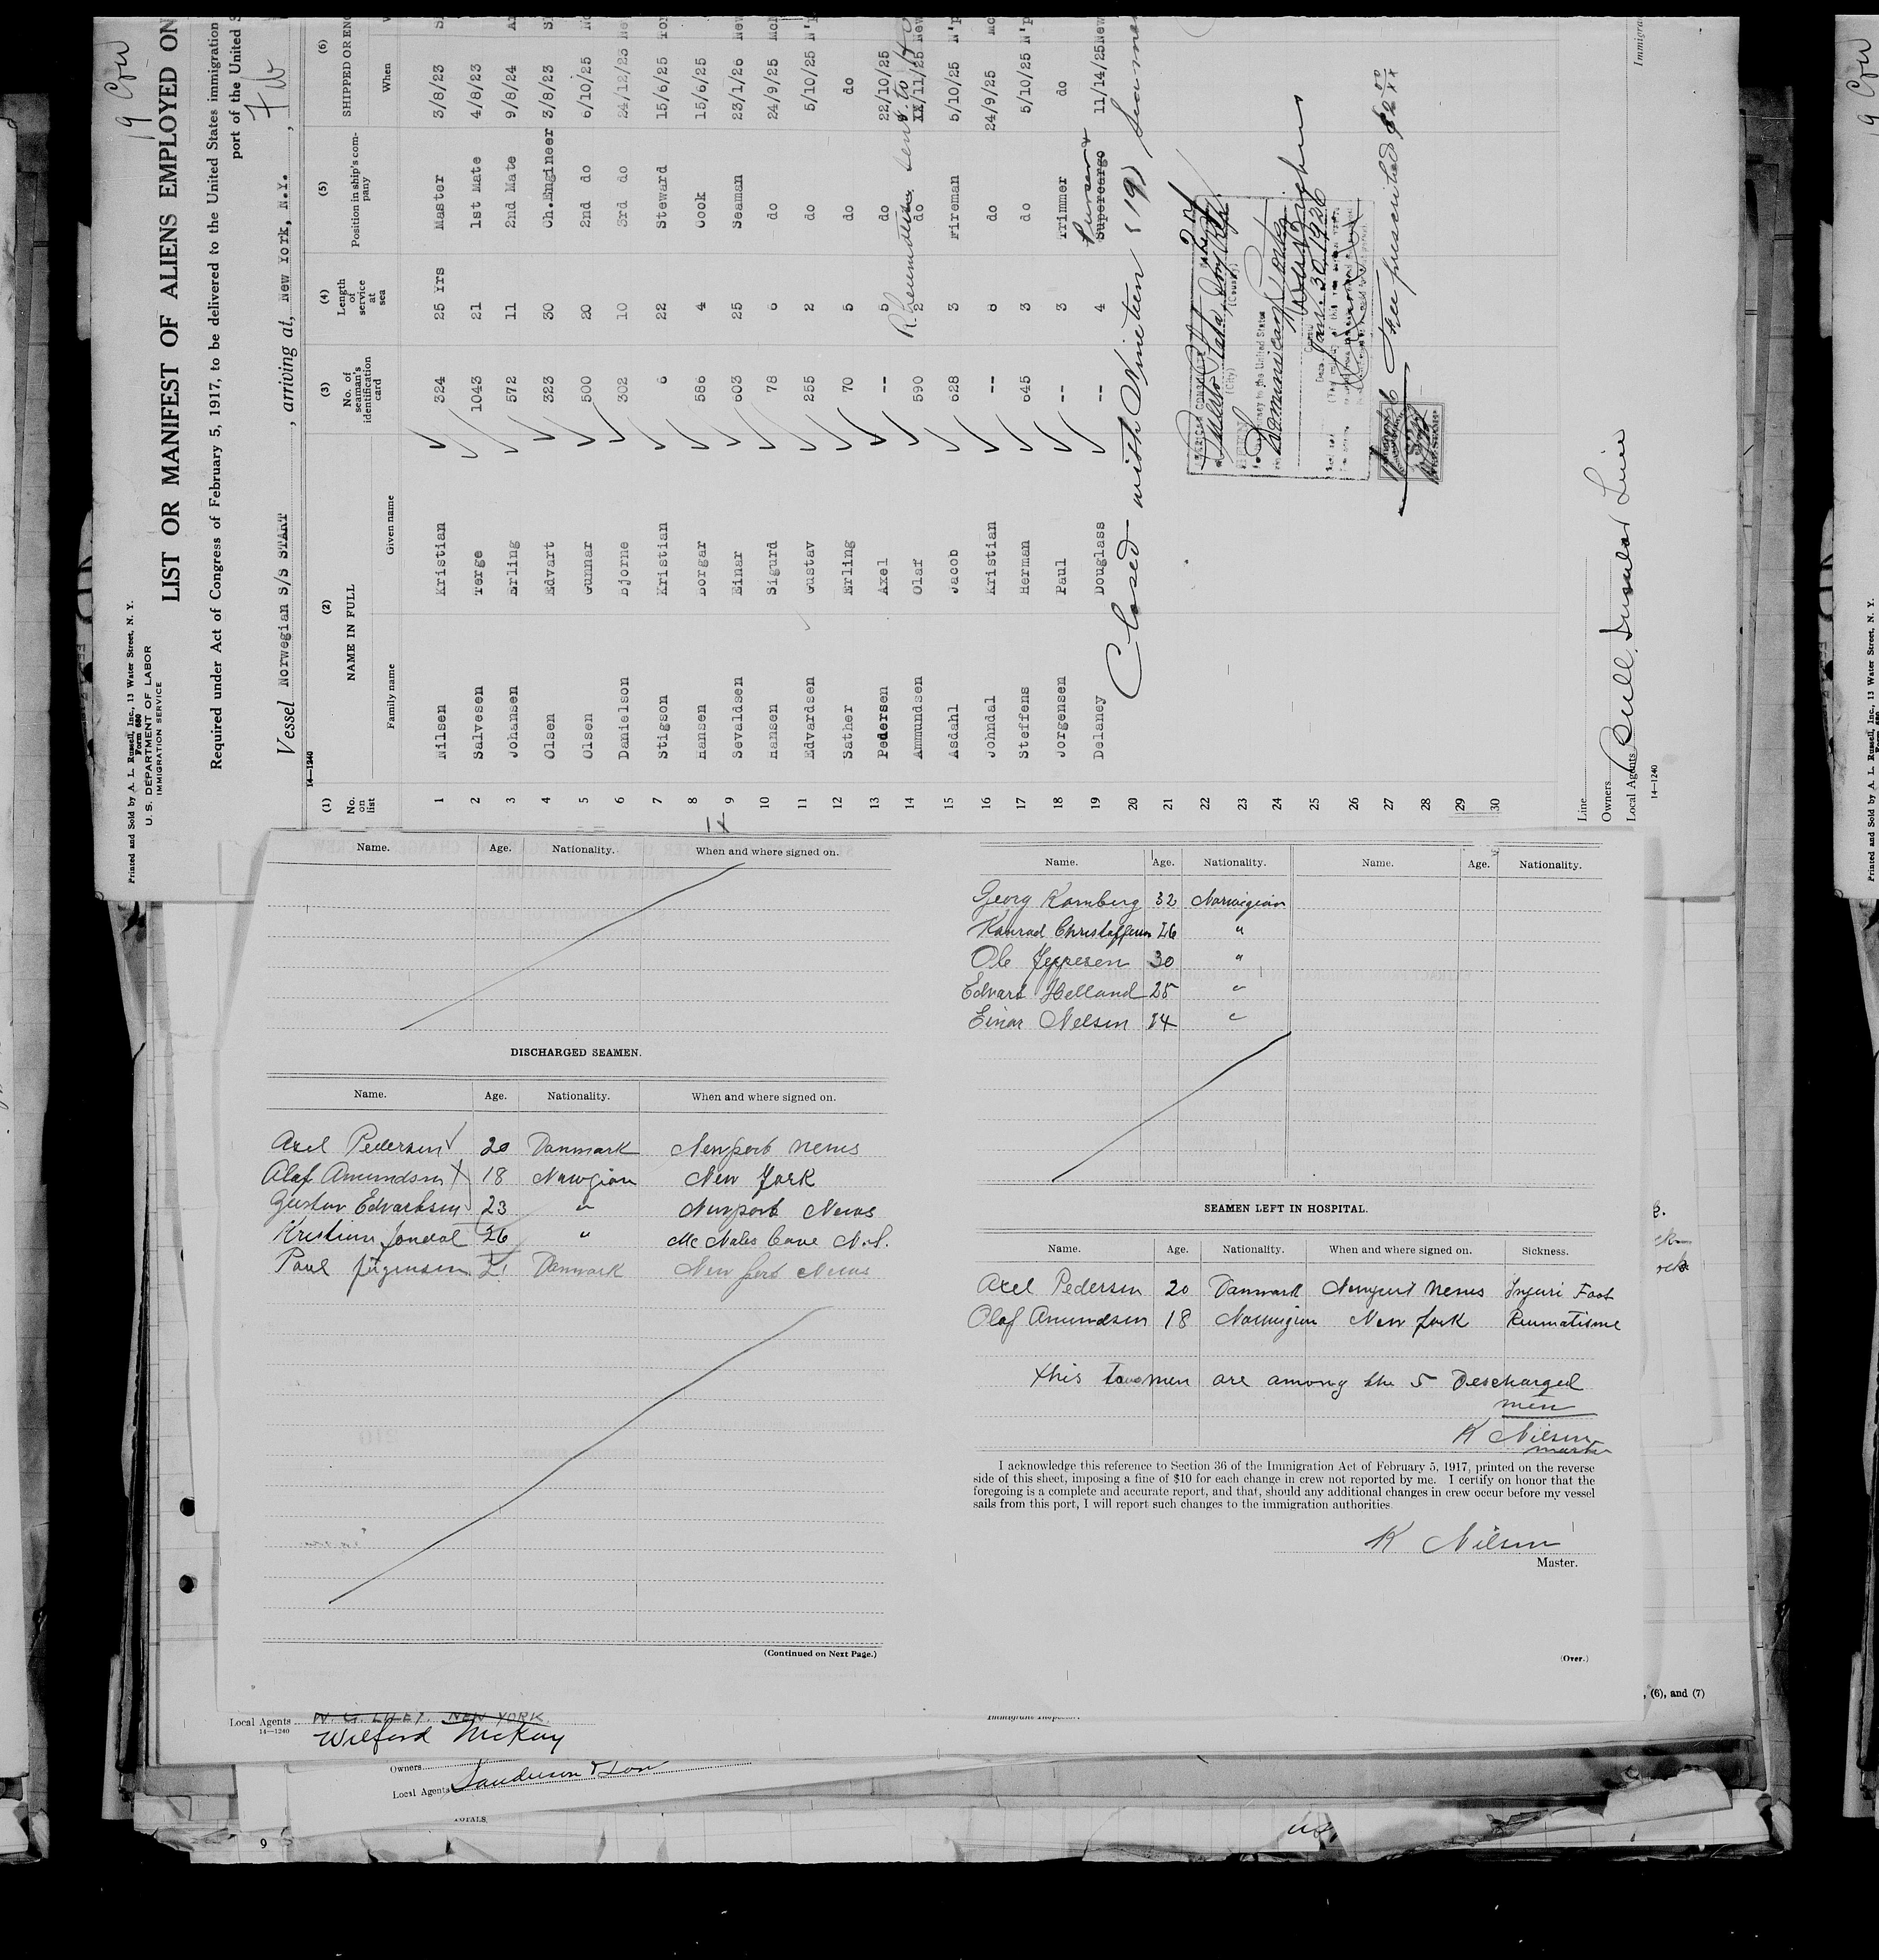 19 Crew
Printed and Sold by A. L. Russell, Inc., 13 Water Street, N. Y.
Form 680
U. S. DEPARTMENT OF LABOR
IMMIGRATION SERVICE
LIST OR MANIFEST OF ALIENS EMPLOYED ON
Required under Act of Congress of February 5, 1917, to be delivered to the United States immigration
port of the United S
Vessel Norwegian S/S START, arriving at, New York, N.Y.,
14—1240
(1) (2) (3) (4) (5) (6)
No. on list NAME IN FULL No. of seaman's identification card Length of service at sea Position in ship's company SHIPPED OR ENG
Family name Given name When
1 Nilsen Kristian 324 25 Yrs Master 3/8/23
2 Salvesen Terge 1043 21 1st Mate 4/8/23
3 Johansen Erling 572 11 2nd Mate 9/8/24
4 Olsen Edvart 323 30 Ch.Engineer 3/8/23
5 Olsen Gunnar 500 20 2nd do 6/10/25
6 Danielson Bjorne 302 10 3rd do 24/12/23 Ne
7 Stigson Kristian 6 22 Steward 15/6/25
8 Hansen Borgar 586 4 Cook 15/6/25
9 Sevaldsen Einar 603 25 Seaman 23/1/26 New
10 Hansen Sigurd 78 6 do 24/9/25 McN
11 Edvardsen Gustav 255 2 do 5/10/25 N'p
12 Sather Erling 70 5 do do
13 Pedersen Axel -- 5 do 22/10/25
14 Ammundsen Olaf 590 2 do 11/25 New
Rheumatism sent to
15 Asdahl Jacob 628 3 Fireman 5/10/25 N'p
16 Johndal Kristian -- 8 do 24/9/25 Mc
17 Steffens Herman 645 3 do 5/10/25 N'p
18 Jorgensen Paul -- 3 Trimmer do
19 Delaney Douglass -- 4 Purser & Supercargo 11/14/25 New
20
Closed with Nineteen (19) Seamen
21
22
23
24
25
26
27
28
29
30
Dominican
Jan. 30 1926
Fee prescribed $2
Line
Owners
Local Agents Bull Insular Line
14—1240
Immigra
Name. Age. Nationality. When and where signed on.
DISCHARGED SEAMEN.
Name. Age. Nationality. When and where signed on.
Axel Pedersen 20 Danmark Newport News
Olaf Amundsen 18 Norwgian New York
Gustav Edvardsen 23 " Newport News
Kristian Jondal 26 " Mc Nabs Cave N.S.
Paul Jörgensen 21 Danmark New port News
(Continued on Next Page.)
Name. Age. Nationality. Name. Age. Nationality.
Georg Kamberg 32 Norwegian
Konrad Christoffersen 26 "
Ole Jeppesen 30 "
Edvard Helland 25 "
Einar Nelsen 24 "
SEAMEN LEFT IN HOSPITAL.
Name. Age. Nationality. When and where signed on. Sickness.
Axel Pedersen 20 Danmark Newport News Injuri Foot
Olaf Amundsen 18 Norwegian New York Reumatisme
this two men are among the 5 Descharged
men
K Nilsen
master
I acknowledge this reference to Section 36 of the Immigration Act of February 5, 1917, printed on the reverse
side of this sheet, imposing a fine of $10 for each change in crew not reported by me. I certify on honor that the
foregoing is a complete and accurate report, and that, should any additional changes in crew occur before my vessel
sails from this port, I will report such changes to the immigration authorities.
K Nilsen
Master.
(Over.)
, (6), and (7)
Local Agents
14—1240
Wilford McKay
Owners
Local Agents Sanderson & Son
TOTALS
9